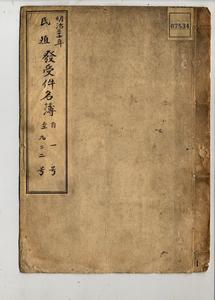 明治三十年
民殖發受件名簿
自一号
至九二二号
07534